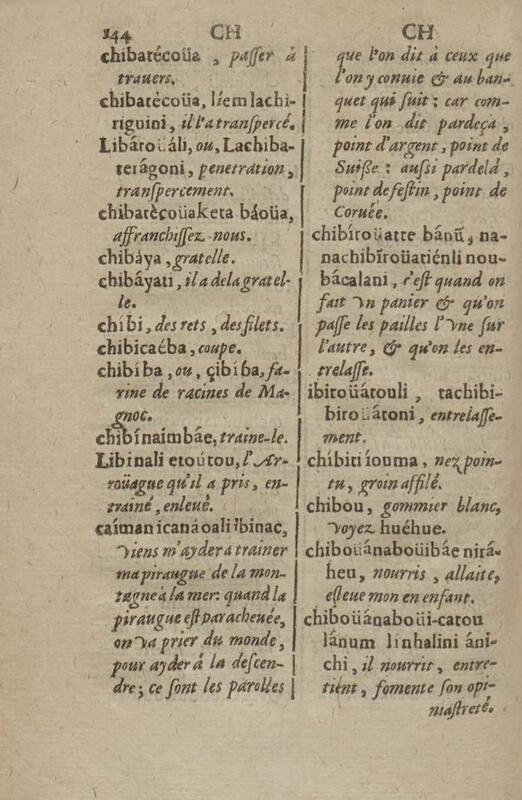 144 CH CH
chibatécoüa, passer à
trauers.
chibatécoüa, líem lachi-
riguini, il l'a transpercé.
Libároüáli, ou, Lachiba-
terágoni, penetration,
transpercement.
chibatècoüaketa báoüa,
affranchissez-nous.
chibáya, gratelle.
chibáyati, il a de la gratel-
le.
chíbi, des rets, des filets.
chibicaéba, coupe.
chibíba, ou, çibíba, fa-
rine de racines de Ma-
gnoc.
chibínaimbáe, traine-le.
Libínali etoútou, l'Ar-
roüague qu'il a pris, en-
trainé, enleué.
caíman icanáoali ibinac,
viens m'ayder a trainer
ma piraugue de la mon-
tagne à la mer: quand la
piraugue est paracheuée,
on va prier du monde,
pour ayder à la descen-
dre; ce sont les parolles
que l'on dit à ceux que
l'on y conuie & au ban-
quet qui suit: car com-
me l'on dit pardeça,
point d'argent, point de
Suisse: aussi pardelà,
point de festin, point de
Coruée.
chibíroüatte bánũ, na-
nachibíroüatiénli nou-
bácalani, c'est quand on
fait vn panier & qu'on
passe les pailles l'vne sur
l'autre, & qu'on les en-
trelasse.
ibiroüátouli, tachibi-
biroüátoni, entrelasse-
ment.
chíbiti íouma, nez poin-
tu, groin affilé.
chibou, gommier blanc,
voyez huéhue.
chiboüánaboüibáe nirá-
heu, nourris, allaite,
esleue mon enfant.
chiboüánaboüi-catou
lánum línhalini áni-
chi, il nourrit, entre-
tient, fomente son opi-
niastreté.